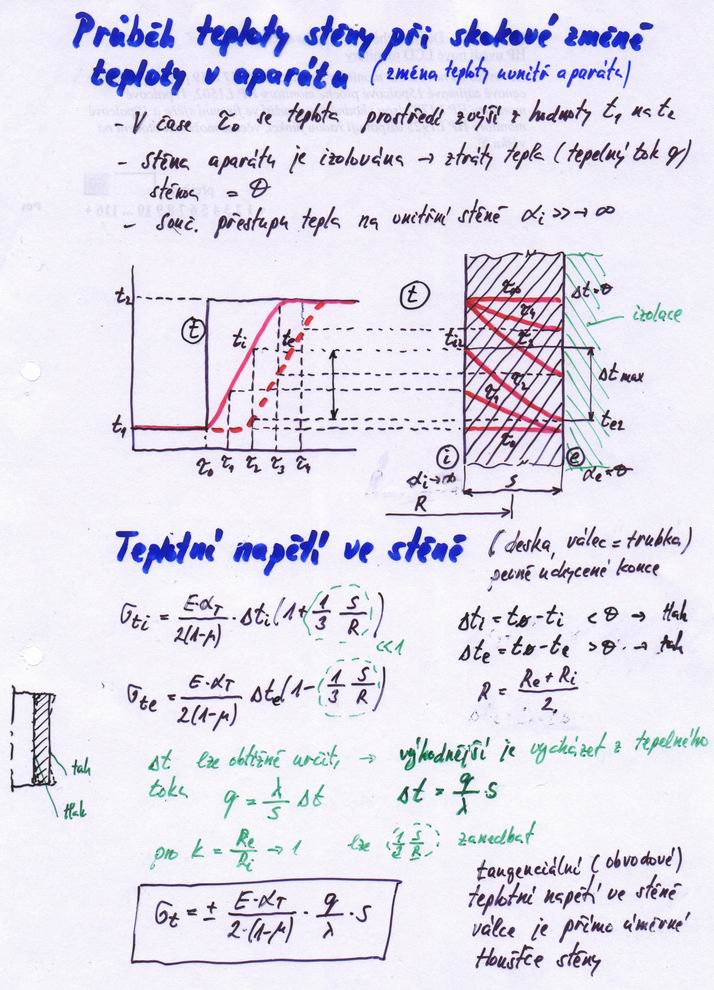 Průběh teploty stěny při skokové změně
teploty v aparátu (změna teploty uvnitř aparátu)
V čase τ₀ se teplota prostředí zvýší z hodnoty t₁ na t₂
- stěna aparátu je izolována → ztráty tepla (tepelný tok q)
stěnou = 0
- Souč. přestupu tepla na vnitřní stěně αi >> → ∞
t₂
t
ti
te
t₁
τ₀ τ₁ τ₂ τ₃ τ₄
t
τ∞
Δt=0
τ₄
izolace
τ₃
ti2
τ₂
Δt max
τ₁
te2
τ₀
i
e
αi→∞
s
αe=0
R
Teplotní napětí ve stěně (deska, válec = trubka)
pevně uchycené konce
σti = E·αT / 2(1-μ) · Δti (1 + 1/3 S/R)
<<1
Δti = tø - ti < 0 → tlak
Δte = tø - te > 0 → tah
σte = E·αT / 2(1-μ) Δte (1 - 1/3 S/R)
R = Re + Ri / 2
tah
tlak
Δt lze obtížně určit, → výhodnější je vycházet z tepelného
toku q = λ/s Δt Δt = q/λ · s
pro k = Re/Ri → 1 lze (1/2 S/R) zanedbat
σt = ± E·αT / 2·(1-μ) · q/λ · s
tangenciální (obvodové)
teplotní napětí ve stěně
válce je přímo úměrné
tloušťce stěny